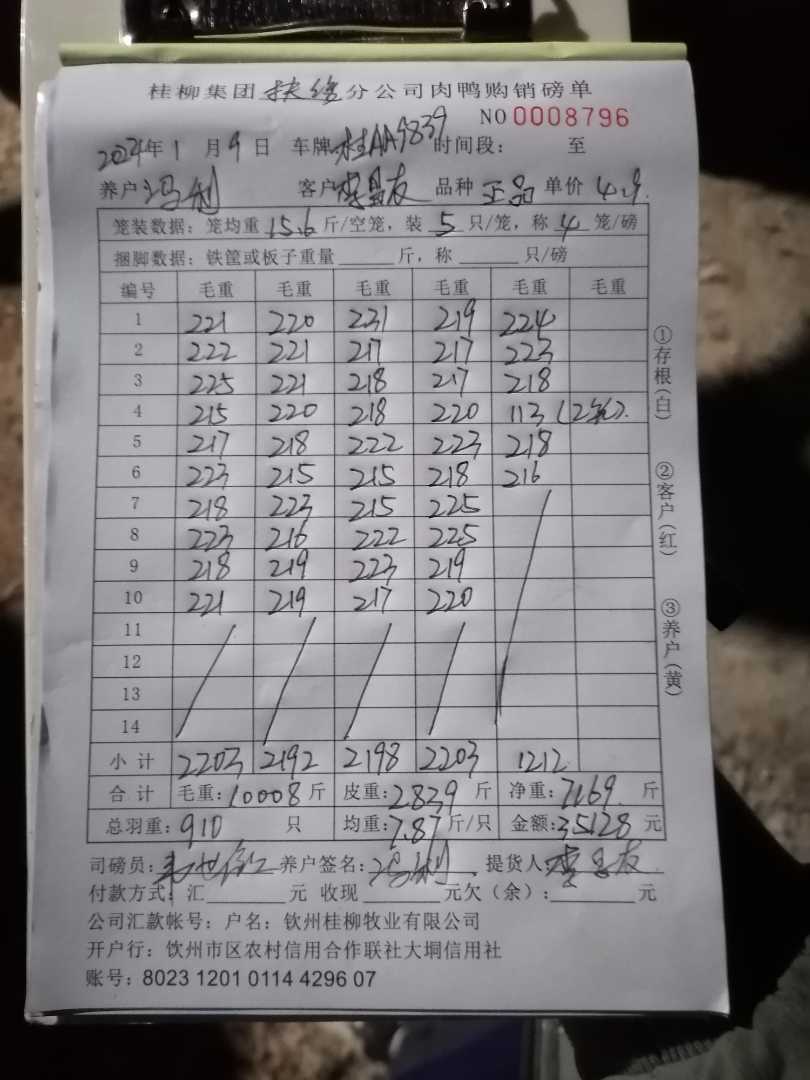 桂柳集团扶绥分公司肉鸭购销磅单
NO 0008796
2024年1月9日 车牌桂AA9839 时间段: 至
养户冯利 客户李昌友 品种正品 单价4.9.
笼装数据: 笼均重15.6斤/空笼, 装5只/笼, 称4笼/磅
捆脚数据: 铁筐或板子重量 斤, 称 只/磅
编号 毛重 毛重 毛重 毛重 毛重 毛重
1 221 220 231 219 224
2 222 221 217 217 223
3 225 221 218 217 218
4 215 220 218 220 113(2笼).
5 217 218 222 223 218
6 223 215 215 218 216
7 218 223 215 225
8 223 216 222 225
9 218 219 223 219
10 221 219 217 220
11
12
13
14
小计 2203 2192 2198 2203 1212
合计 毛重:10008斤 皮重:2839斤 净重:7169.斤
总羽重:910只 均重:7.87斤/只 金额:35128元
司磅员: 养户签名:冯利. 提货人李昌友.
付款方式: 汇 元 收现 元欠(余): 元
公司汇款帐号: 户名: 钦州桂柳牧业有限公司
开户行: 钦州市区农村信用合作联社大垌信用社
账号: 8023 1201 0114 4296 07
①存根(白)
②客户(红)
③养户(黄)